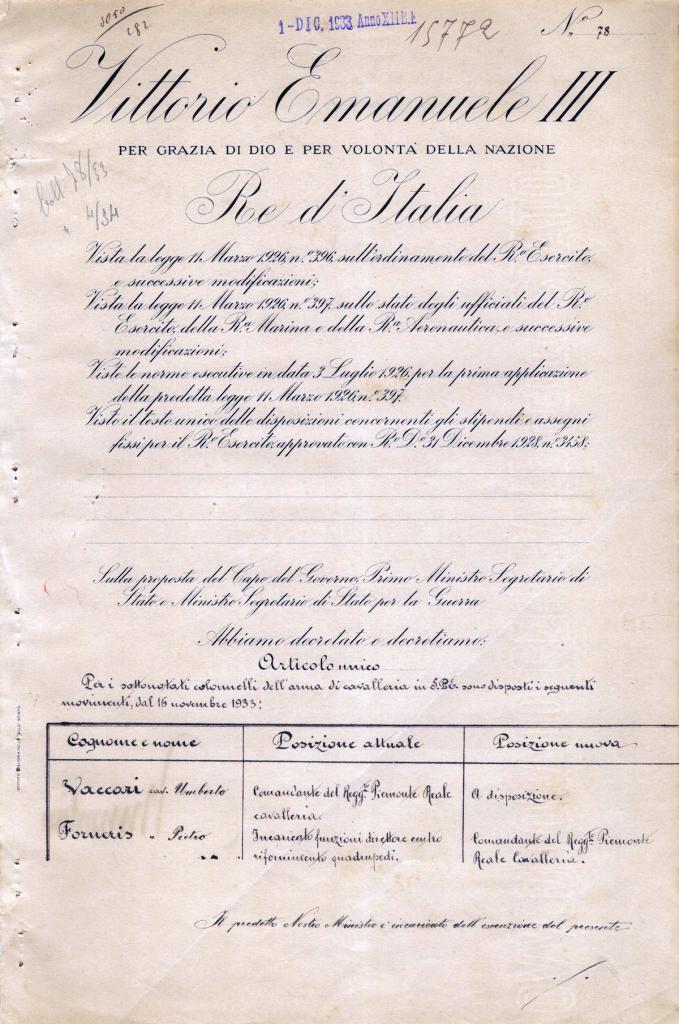 3050
282
1-DIC. 1933 Anno XII E.F.
15772
N.o 78
Vittorio Emanuele III
PER GRAZIA DI DIO E PER VOLONTA' DELLA NAZIONE
Re d'Italia
boll 78/33
" 4/34
Vista la legge 11 Marzo 1926, n.° 396, sull'ordinamento del R.° Esercito,
e successive modificazioni;
Vista la legge 11 Marzo 1926, n.° 397, sullo stato degli ufficiali del R.°
Esercito, della R.a Marina e della R.a Aeronautica, e successive
modificazioni;
Viste le norme esecutive in data 3 Luglio 1926, per la prima applicazione
della predetta legge 11 Marzo 1926, n.° 397;
Visto il testo unico delle disposizioni concernenti gli stipendi e assegni
fissi per il R.° Esercito, approvato con R.° D.° 31 Dicembre 1928, n.° 3458;
Sulla proposta del Capo del Governo, Primo Ministro Segretario di
Stato e Ministro Segretario di Stato per la Guerra
Abbiamo decretato e decretiamo:
Articolo unico
Per i sottonotati colonnelli dell'arma di cavalleria in S.P.E. sono disposti i seguenti
movimenti, dal 16 novembre 1933:
Cognome e nome Posizione attuale Posizione nuova
Vaccari cav. Umberto Comandante del Regg.to Piemonte Reale A disposizione.
cavalleria.
Forneris " Pietro Incaricato funzioni direttore centro Comandante del Regg.to Piemonte
rifornimento quadrupedi. Reale Cavalleria.
Il predetto Nostro Ministro è incaricato dell'esecuzione del presente
./.